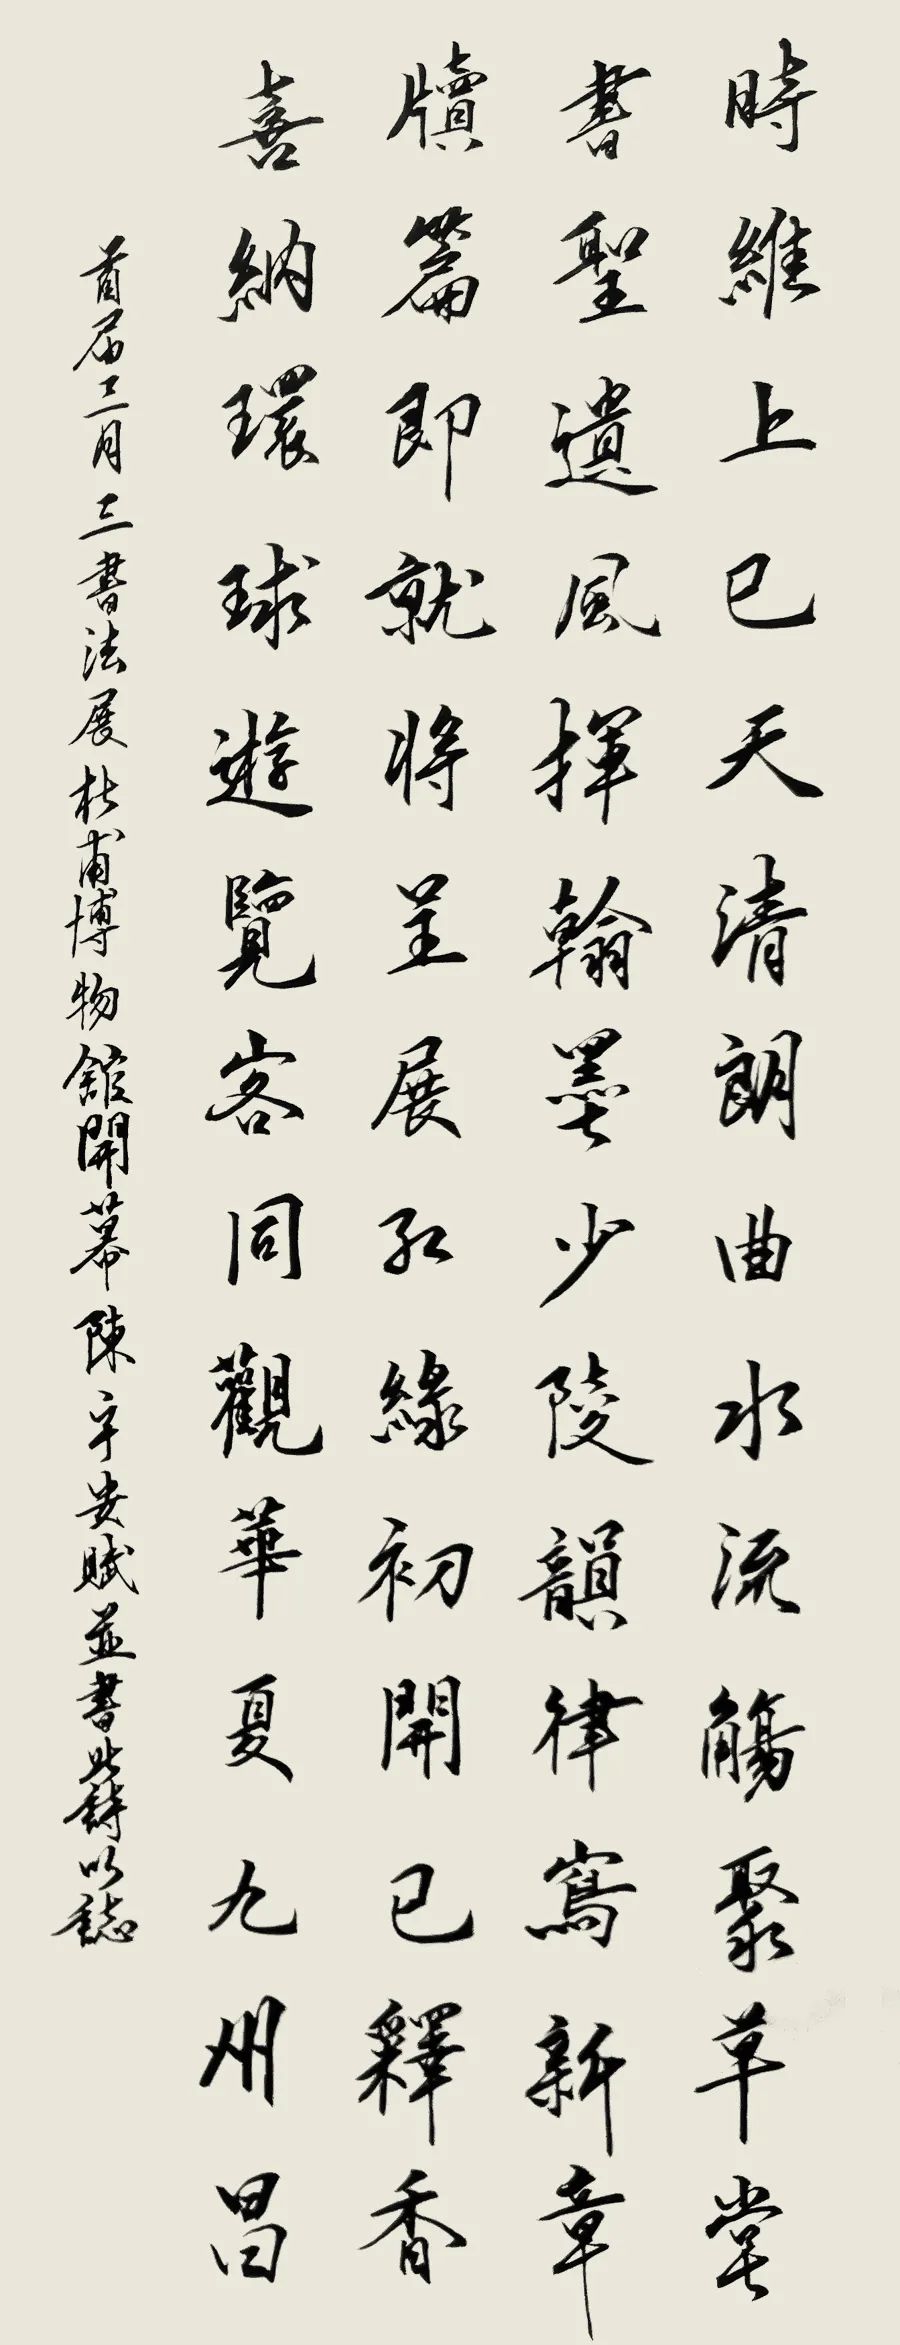 時維上巳天清朗曲水流觴聚草堂
書聖遺風揮翰墨少陵韻律寫新章
牘篇即就將呈展孔緣初開已釋香
喜納環球遊覽客同觀華夏九州昌
首届三月三書法展杜甫博物館開幕陳字安賦並書此詩以誌